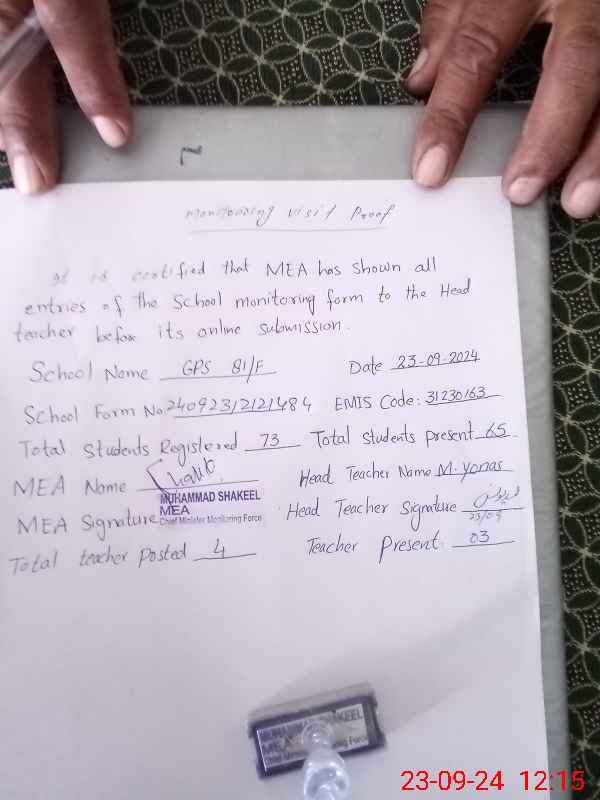 Monitoring visit Proof
It is certified that MEA has shown all
entries of the School monitoring form to the Head
teacher before its online submission.
School Name GPS 81/F Date 23-09-2024
School Form No. 24092312121484 EMIS Code: 31230163
Total Students Registered 73 Total Students present 65
MEA Name Head Teacher Name M. Yonas
MUHAMMAD SHAKEEL
MEA
Chief Minister Monitoring Force
MEA Signature Head Teacher Signature
23/09
Total teacher Posted 4 Teacher Present 03
MUHAMMAD SHAKEEL
MEA
Chief Minister Monitoring Force
23-09-24 12:15